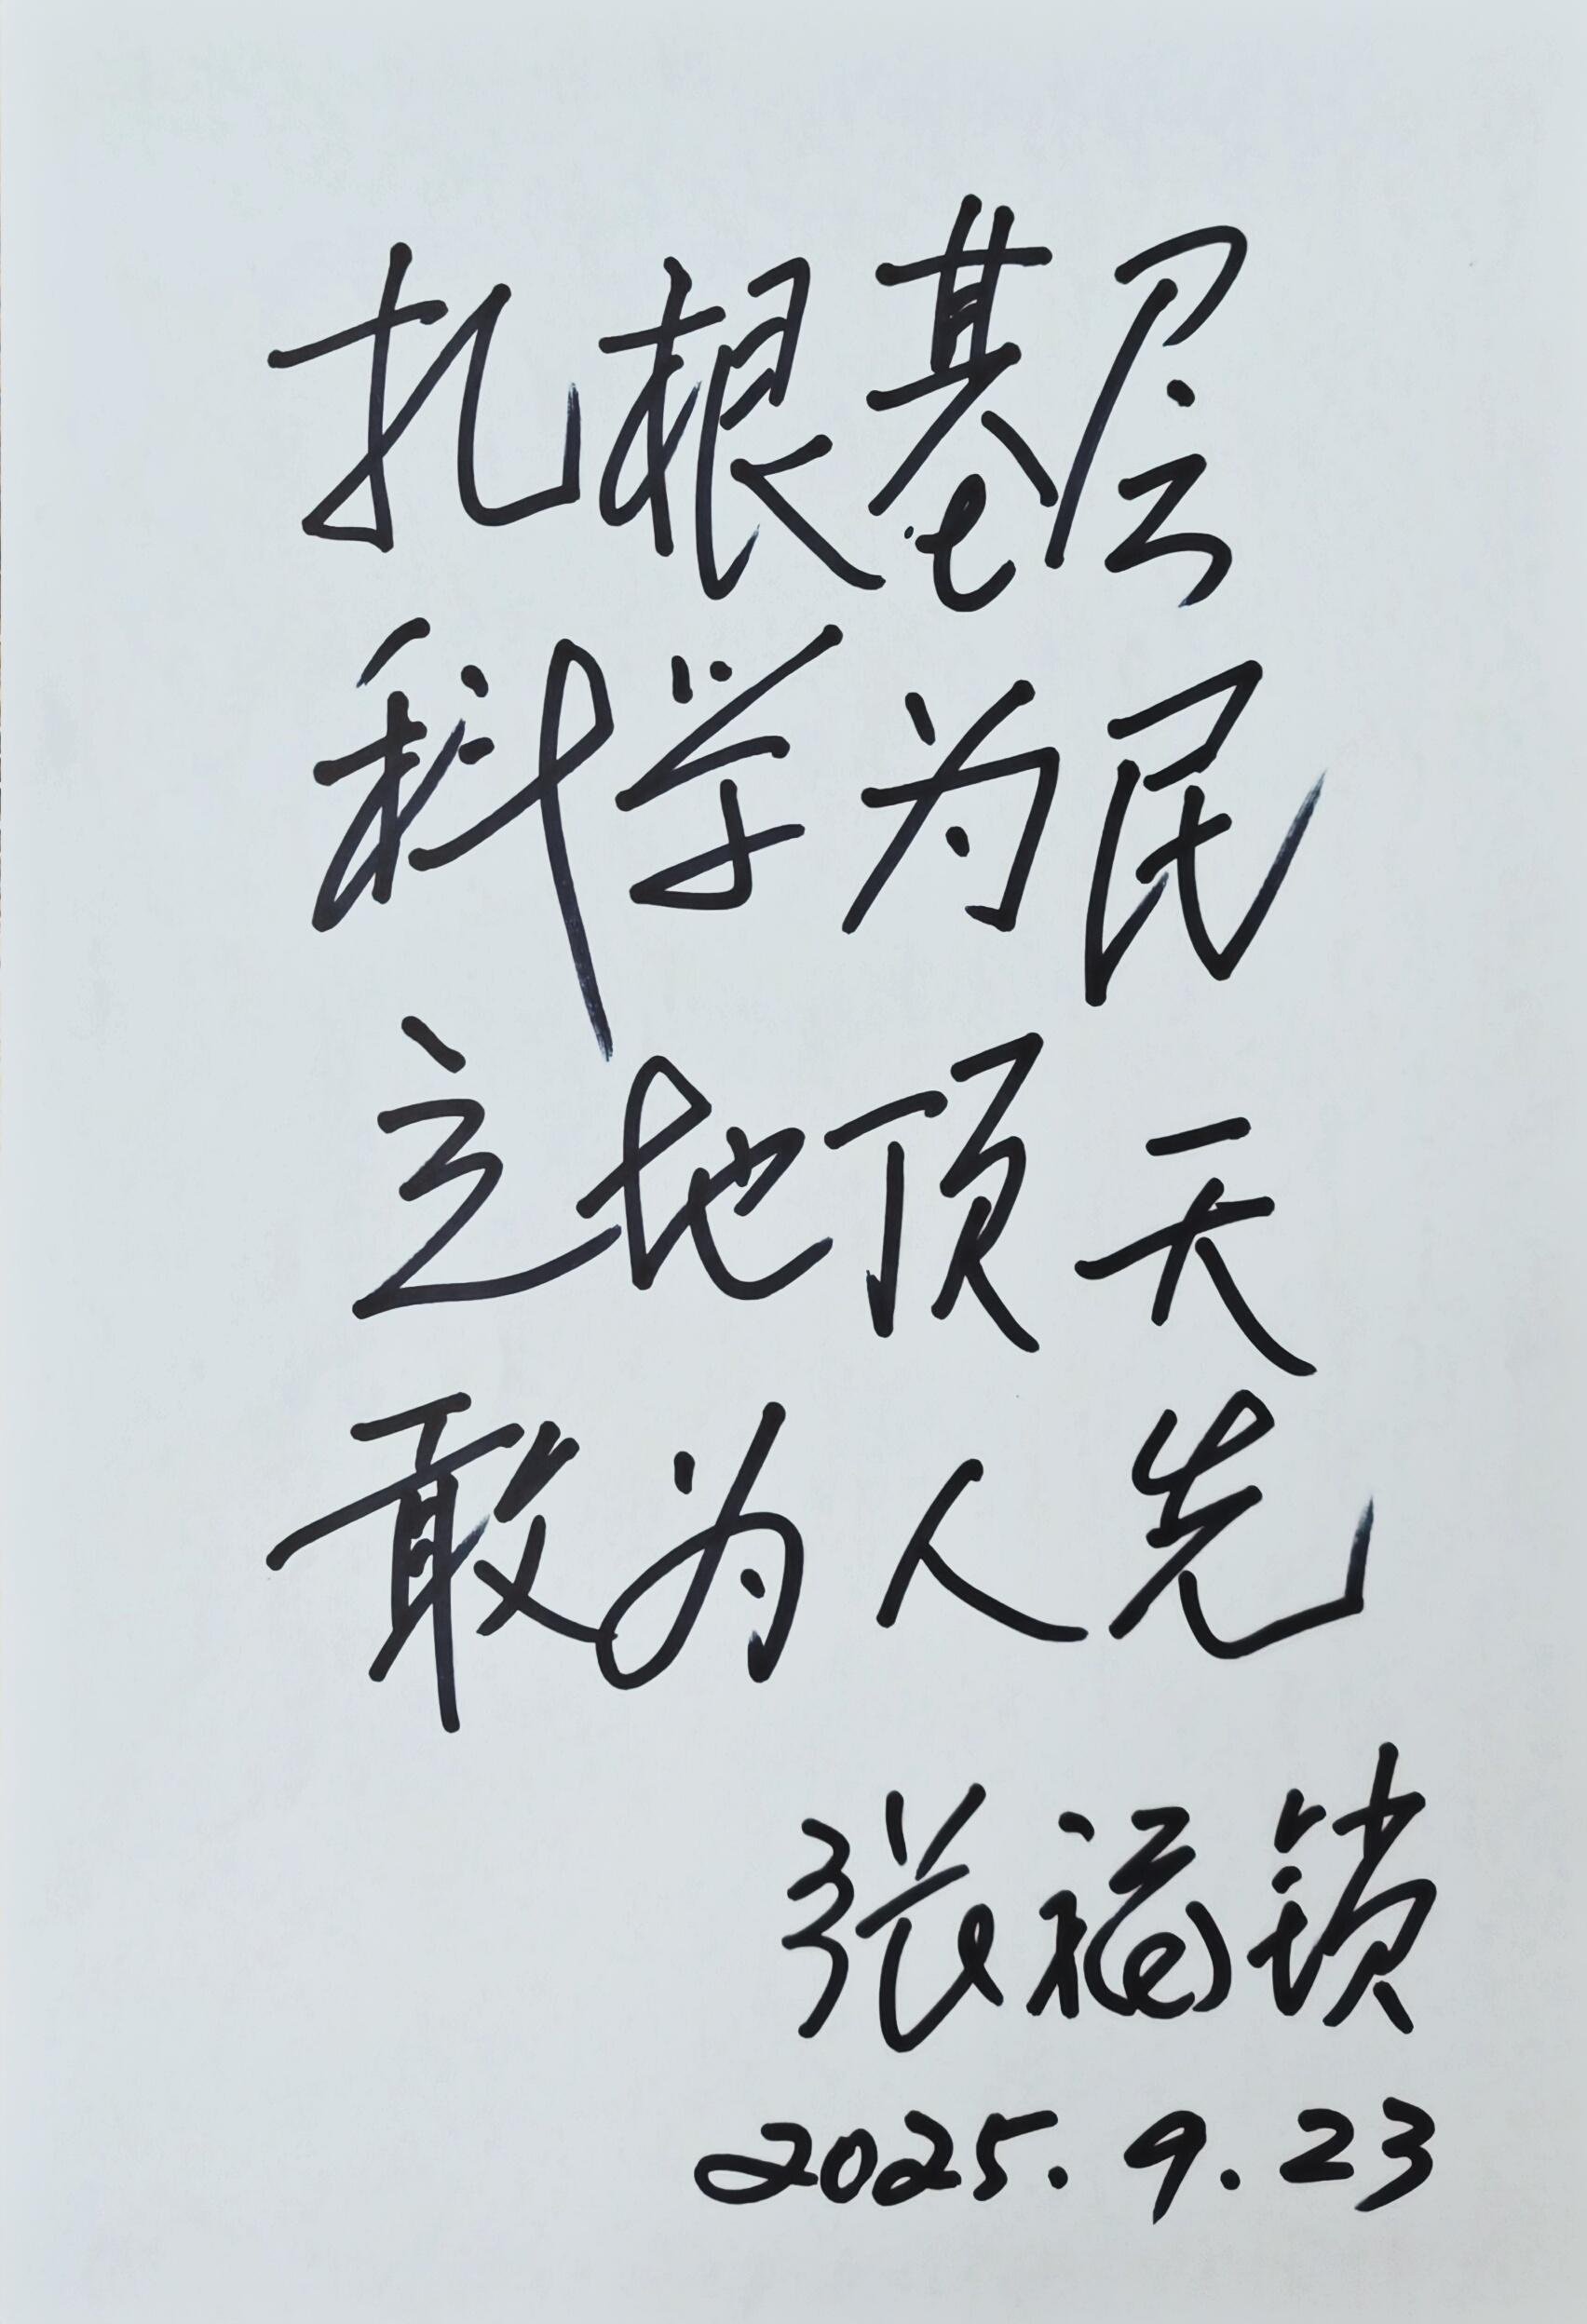 扎根基层
科学为民
立地顶天
敢为人先
张福锁
2025.9.23